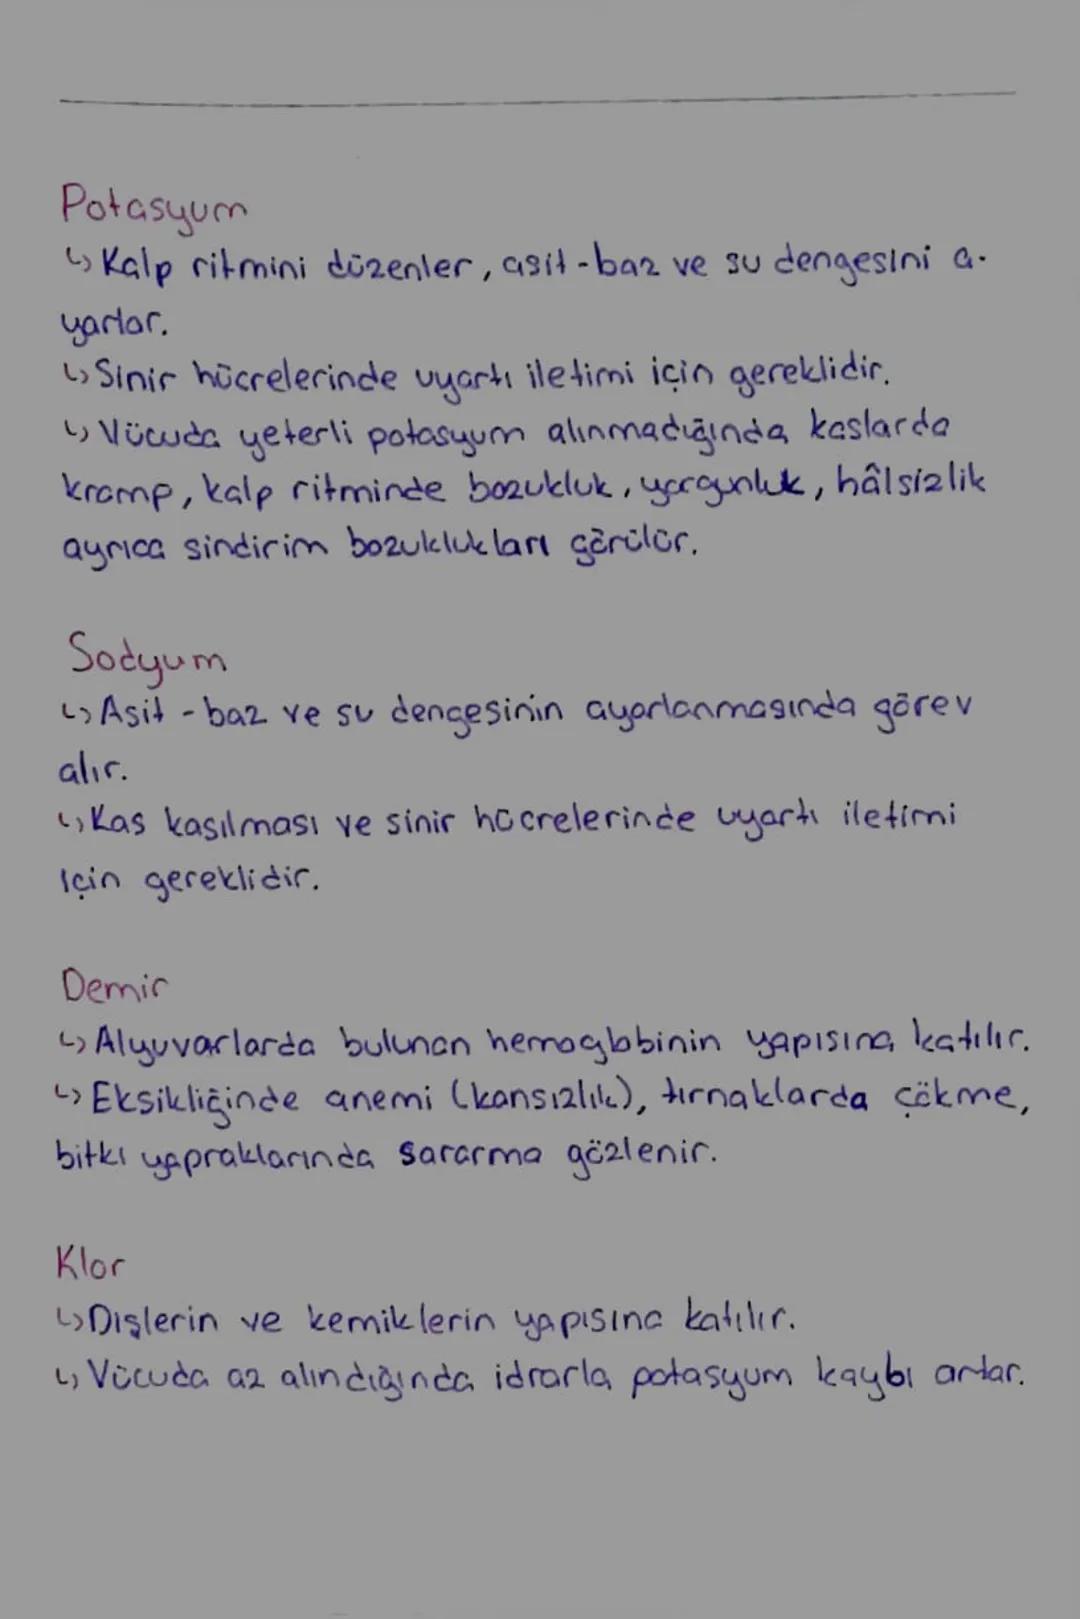 Potasyum
↳ Kalp ritmini düzenler, asit-baz ve su dengesini a-
yarlar.
↳ Sinir hücrelerinde uyartı iletimi için gereklidir.
↳ Vücuda yeterli potasyum alınmadığında kaslarda
kramp, kalp ritminde bozukluk, yorgunluk, hâlsizlik
ayrıca sindirim bozuklukları görülür.
Sodyum
↳ Asit-baz ve su dengesinin ayarlanmasında görev
alır.
↳ Kas kasılması ve sinir hücrelerinde uyartı iletimi
için gereklidir.
Demir
↳ Alyuvarlarda bulunan hemoglobinin yapısına katılır.
↳ Eksikliğinde anemi (kansızlık), tırnaklarda çökme,
bitki yapraklarında sararma gözlenir.
Klor
↳ Dişlerin ve kemiklerin yapısına katılır.
↳ Vücuda az alındığında idrarla potasyum kaybı artar.